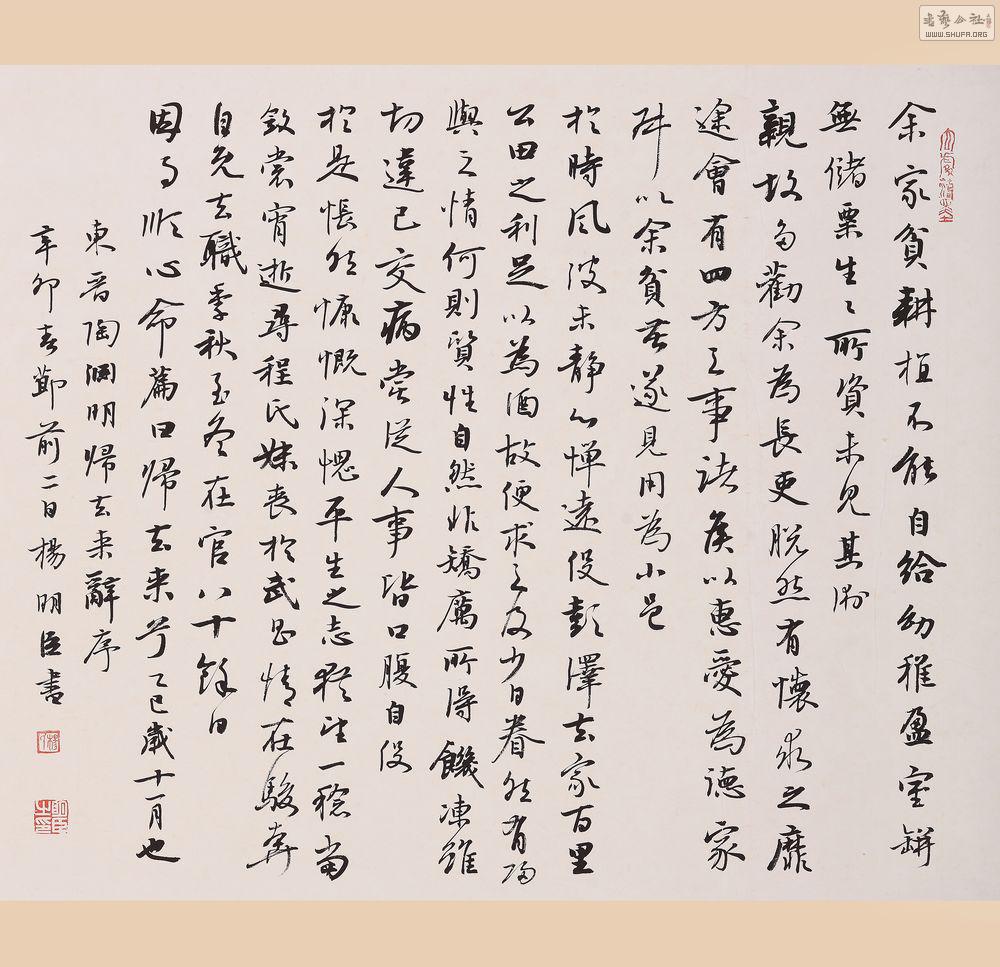 余家貧耕植不能自給幼稚盈室缾
無儲粟生々所資未見其術
親故多勸余為長吏脱然有懷求之靡
途會有四方之事諸侯以惠愛為德家
叔以余貧苦遂見用為小邑
於時風波未静心憚遠役彭澤去家百里
公田之利足以為酒故便求之及少日眷然有歸
與之情何則質性自然非矯厲所得饑凍雖
切違己交病嘗從人事皆口腹自役
於是悵然慷慨深愧平生之志猶望一稔當
斂裳宵逝尋程氏妹喪於武昌情在駿奔
自免去職季秋至冬在官八十餘日
因事順心命篇曰歸去来兮乙巳歲十一月也
東晋陶淵明歸去来辭序
辛卯春節前二日楊明臣書
書藝公社
WWW.SHUFA.ORG